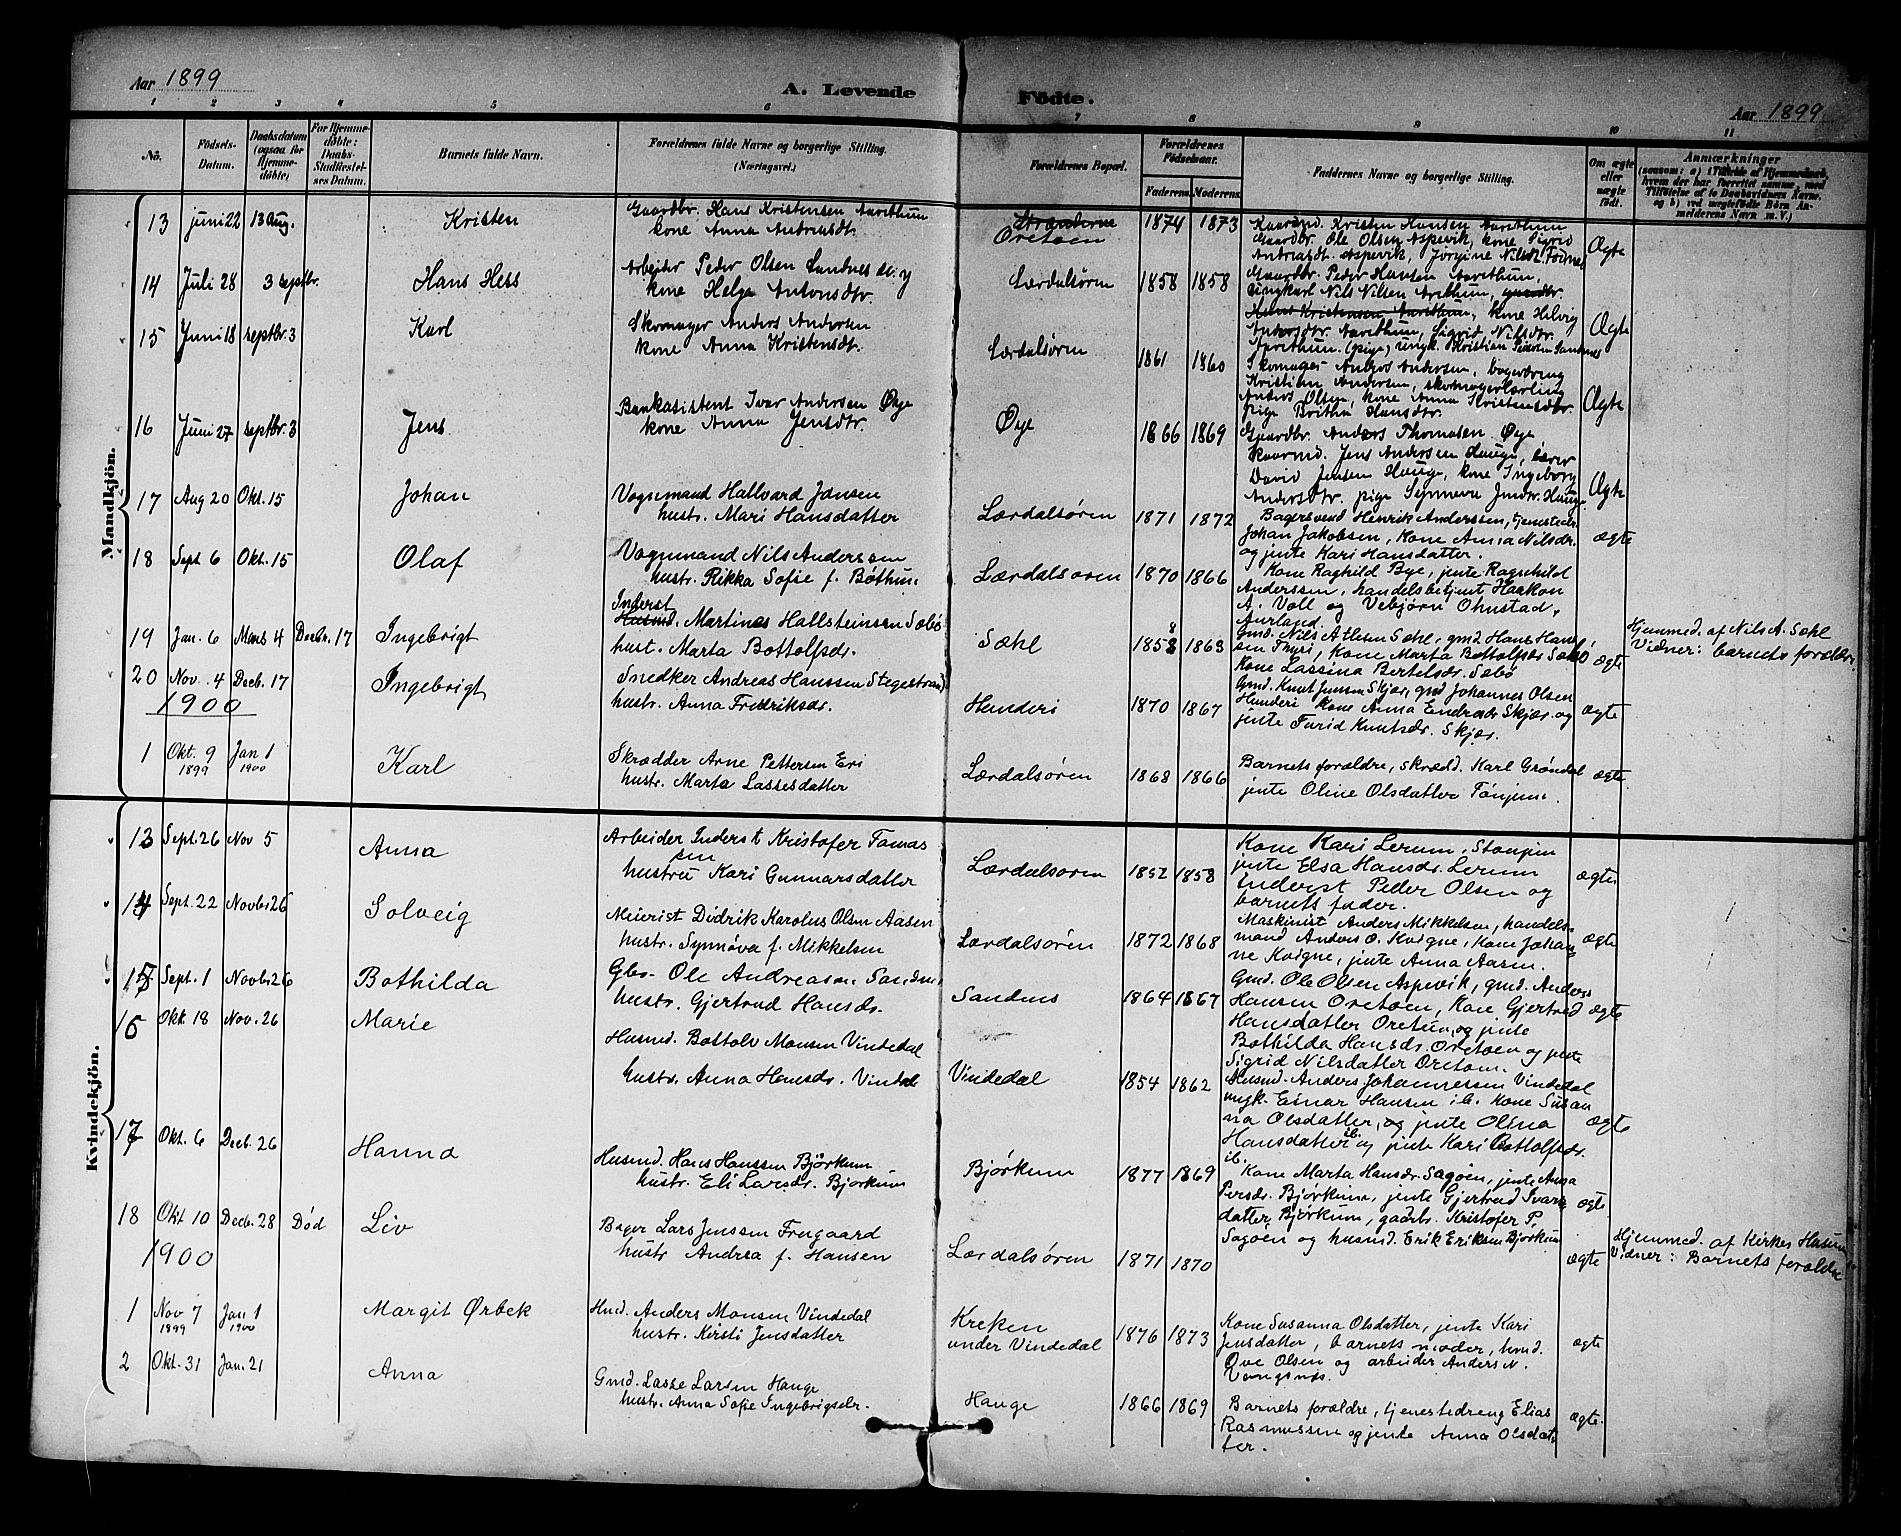 Aar 1899
A. Levende
Födte.
Aar 1899
1 2 3 4 5 6 7 8 9 10 11
No.
Födsels-Datum.
Daabsdatum (ogsaa for Hjemme-döbte)
For Hjemme-döbte: Daabs-Stadfæstel-ses Datum.
Barnets fulde Navn.
Forældrenes fulde Navne og borgerlige Stilling.
(Næringsvei.)
Forældrenes Bopæl.
Forældrenes Födselsaar.
Faderens. Moderens.
Faddernes Navne og borgerlige Stilling.
Om ægte eller uægte födt.
Anmærkninger
(saasom: a) i Tilfælde af Hjemmedaab, hvem der har forrettet samme, med Tilföielse af to Daabsvidners Navne, og b) ved uægtefödte Börn Anmelderens Navn m. V.)
Mandkjön.
13 juni 22 13 Aug. Kristen
Gaardbr. Hans Kristensen Aarethun
kone Anna Andriasdt.
Strænderne
Oretoen 1874 1873
Kaarmd. Kristen Hansen Aarethum
Gaardbr. Ole Olsen Aspevik, kone Sigrid
Andriasdt. Aspevik, Jørgine Nilsdt. Tønne
Ægte
14 Juli 28 3 septbr. Hans Hess
Arbejder Peder Olsen Sandnes og
kone Helga Antonsdtr.
Lærdalsøren 1858 1858
Gaardbr. Peder Hansen Aarethum,
Ungkarl Nils Nilsen Arethum, gaardbr.
Hans Kristensen Aarethum, kone Helvig
Andersdtr. Aarethum, Sigrid Nilsdtr.
Aarethum. (pige) ungk. Kristian Pedersen Sandnes
Ægte
15 Juni 18 septbr. 3 Karl
Skomager Anders Andersen
kone Anna Kristensdt.
Lærdalsøren 1861 1860
Skomager Anders Andersen, bagerdreng
Kristian Andersen, skomagerlærling
Anders Olsen, kone Anna Kristensdbr.
pige Britha Hansdtr.
Ægte
16 Juni 27 septbr. 3 Jens
Bankasistent Ivar Andersen Øye
kone Anna Jensdtr.
Øye 1866 1869
Gaardbr. Anders Thomasen Øye,
Kaarmd. Jens Andersen Hauge, lærer
David Jensen Hauge, kone Ingeborg
Andersdtr. pige Synneva Jensdtr. Hauge
Ægte
17 Aug 20 Okt. 15 Johan
Vognmand Hallvard Jansen
hustr. Mari Hansdatter
Lærdalsøren 1871 1872
Bagersvend Henrik Anderssen, tjenestedr.
Johan Jakobsen, Kone Anna Nilsdr.
og jente Kari Hansdatter.
ægte
18 Sept 6 Okt. 15 Olaf
Vognmand Nils Anderssen
hustr. Rikka Sofie f. Bøthun
Lærdalsøren 1870 1866
Kone Raghild Bye, jente Ragnhild
Anderssen, handelsbetjent Haakon
A. Voll og Vebjørn Ohnstad,
Aurland.
19 Jan. 6 Mars 4 Decbr. 17 Ingebrigt
Inderst
Husmd. Martines Hallsteinsen Sæbø
hust. Marta Bottolfsdr.
Sæhl 1858 8 1863
gmd. Nils Atlesen Sæhl, gmd Hans Han-
sen Thyri, Kone Marta Bottolfsdr Sæbø,
Kone Lassina Bertelsdr. Sæbø
ægte
Hjemmed. af Nils A. Sæhl
Vidner: barnets forældre
20 Nov. 4 Decb. 17 Ingebrigt
Snedker Andreas Hanssen Stegestrand
hustr. Anna Fredriksdr.
Hunderi 1870 1867
Gmd. Knut Jensen Skjær, gmd Johannes Olsen
Hunderi kone Anna Endresdr Skjær og
jente Turid Knutsdr. Skjær.
ægte
1900
1 Okt. 9 1899 Jan 1 1900 Karl
Skrædder Arne Pettersen Eri
hustr. Marta Lassesdatter
Lærdalsøren 1868 1866
Barnets forældre, skrædd. Karl Grøndal
jente Oline Olsdatter Tønjum.
ægte
Kvindekjön.
13 Sept. 26 Nov 5 Anna
Arbeider Inderst Kristofer Tomas
sen
hustru Kari Gunnarsdatter
Lærdalsøren 1852 1858
Kone Kari Lerum,
jente Elsa Hansdr. Lerum
Inderst Peder Olsen og
barnets fader.
ægte
14 Sept. 22 Novbr 26 Solveig
Meierist Didrik Karolus Olsen Aasen
hustr. Synnøva f. Mikkelsen
Lærdalsøren 1872 1868
Maskinist Anders Mikkelsen, handels-
mand Anders O. Kvigne, Kone Johan-
ne Kvigne, jente Anna Aasen.
ægte
15 Sept. 1 Novbr 26 Bothilda
Gbr. Ole Andreasen Sandnes
hustr. Gjertrud Hansdr.
Sandnes 1864 1867
Gmd. Ole Olsen Aspevik, gmd. Anders
Hansen Oretoen, Kone Gjertrud
Hansdatter Oretun, og jente
Bothilda Hansdr. Oretoen og jente
Sigrid Nilsdatter Oretoen.
ægte
16 Okt 18 Nov. 26 Marie
Husmd. Bottolv Monsen Vindedal
hustr. Anna Hansdr. Vindedal
Vindedal 1854 1862
Husmd. Anders Johannessen Vindedal
ungk. Einar Hansen ib. Kone Susan
na Olsdatter, og jente Olina
Hansdatter ib. og jente Kari Bottolfsdr.
ib.
ægte
17 Okt. 6 Decb. 26 Hanna
Husmd. Hans Hanssen Bjørkum
hustr. Eli Larsdr. Bjørkum
Bjørkum 1877 1869
Kone Marta Hansdr. Sagøen, jente Anna
Persdr. Bjørkum, jente Gjertrud Ivars
datter Bjørkum, gaarbr. Kristofer P.
Sagøen og husmd. Erik Eriksen Bjørkum
ægte
18 Okt 10 Decb. 28 Død Liv
Bager Lars Jenssen Frugaard
hustr Andrea f. Hansen
Lærdalsøren 1871 1870
ægte
Hjemmed. af Kirkes.
Vidner: Barnets forældre
1900
1 Nov 7 1899 Jan 1 1900 Margit Ørbek
Hmd. Anders Monsen Vindedal
hustr. Kersti Jensdatter
Kreken
under Vindedal 1876 1873
Kone Susanna Olsdatter, jente Kari
Jensdatter, barnets moder, hmd.
Ove Olsen og arbeider Anders N.
Vangsnes.
ægte
2 Okt. 31 Jan. 21 Anna
Gmd. Lasse Larsen Hauge
hustr. Anna Sofie Ingebrigsdr.
Hauge 1866 1869
Barnets forældre, tjenestedreng Elias
Rasmussen og jente Anna Olsdat-
ter.
ægte.